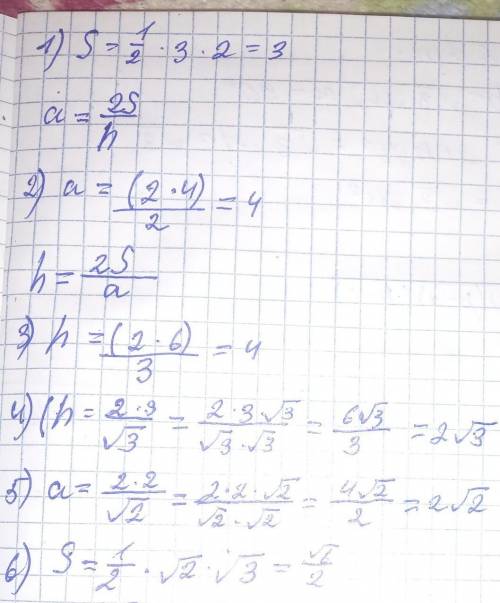 1) S = 1/2 · 3 · 2 = 3
a = 2S/h
2) a = (2 · 4)/2 = 4
h = 2S/a
3) h = (2 · 6)/3 = 4
4) (h = 2 · 3/√3 = 2 · 3 √3/√3 · √3 = 6√3/3 = 2√3
5) a = 2 · 2/√2 = 2 · 2 · √2/√2 · √2 = 4√2/2 = 2√2
6) S = 1/2 · √2 · √3 = √6/2